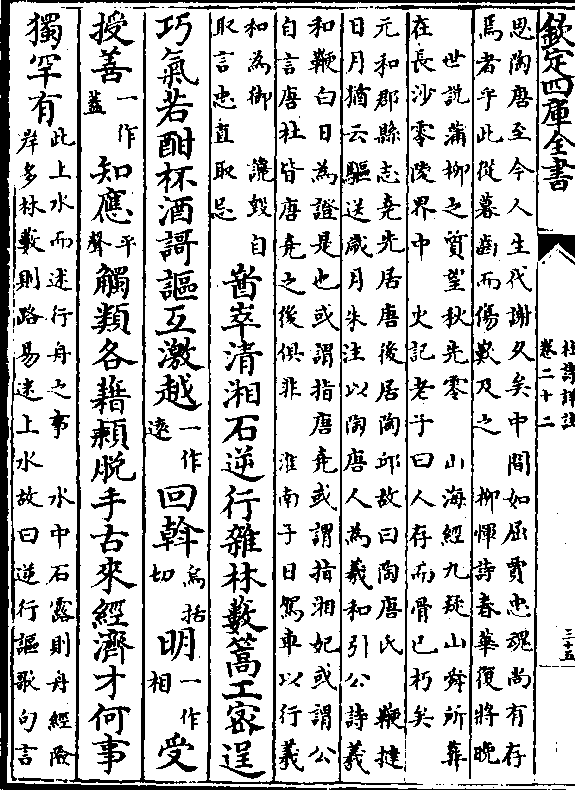 欽定四庫全書
杜詩詳註
卷二十二
三十五
思陶唐至今人生代謝久矣中間如屈賈忠魂尚有存
焉者乎此從暮齒而傷歎及之　柳惲詩春華復將晚
世説蒲柳之質望秋先零　山海經九疑山舜所葬
在長沙零陵界中　史記老子曰人存而骨已朽矣
元和郡縣志堯先居唐後居陶邱故曰陶唐氏　鞭撻
日月猶云驅送歲月朱注以陶唐人為羲和引公詩羲
和鞭白日為證是也或謂指唐堯或謂指湘妃或謂公
自言唐杜皆唐堯之後俱非　淮南子日駕車以行羲
和為御　譏毁自
取言忠直取忌
崷崒清湘石逆行雜林藪篙工密逞
巧氣若酣杯酒謌謳互激越一作遠回斡烏括切明一作相受
授善一作蓋知應平聲觸類各藉穎脱手古來經濟才何事
獨罕有
此上水而述行舟之事　水中石露則舟經險
岸多林藪則路易迷上水故曰逆行謳歌句言